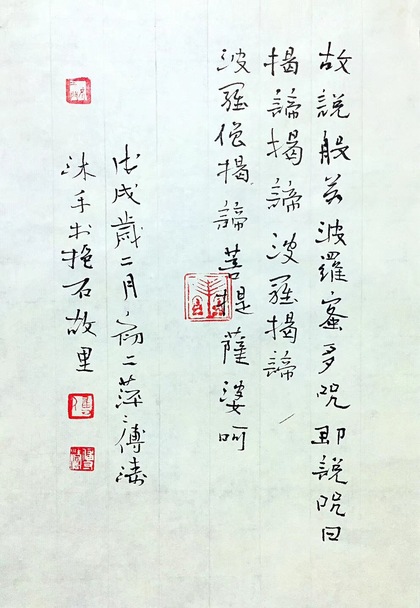 故說般若波羅蜜多咒即說咒曰
揭諦揭諦波羅揭諦
波羅僧揭諦菩提薩婆呵
戊戌歲二月初二萍傅濤
沐手於抱石故里